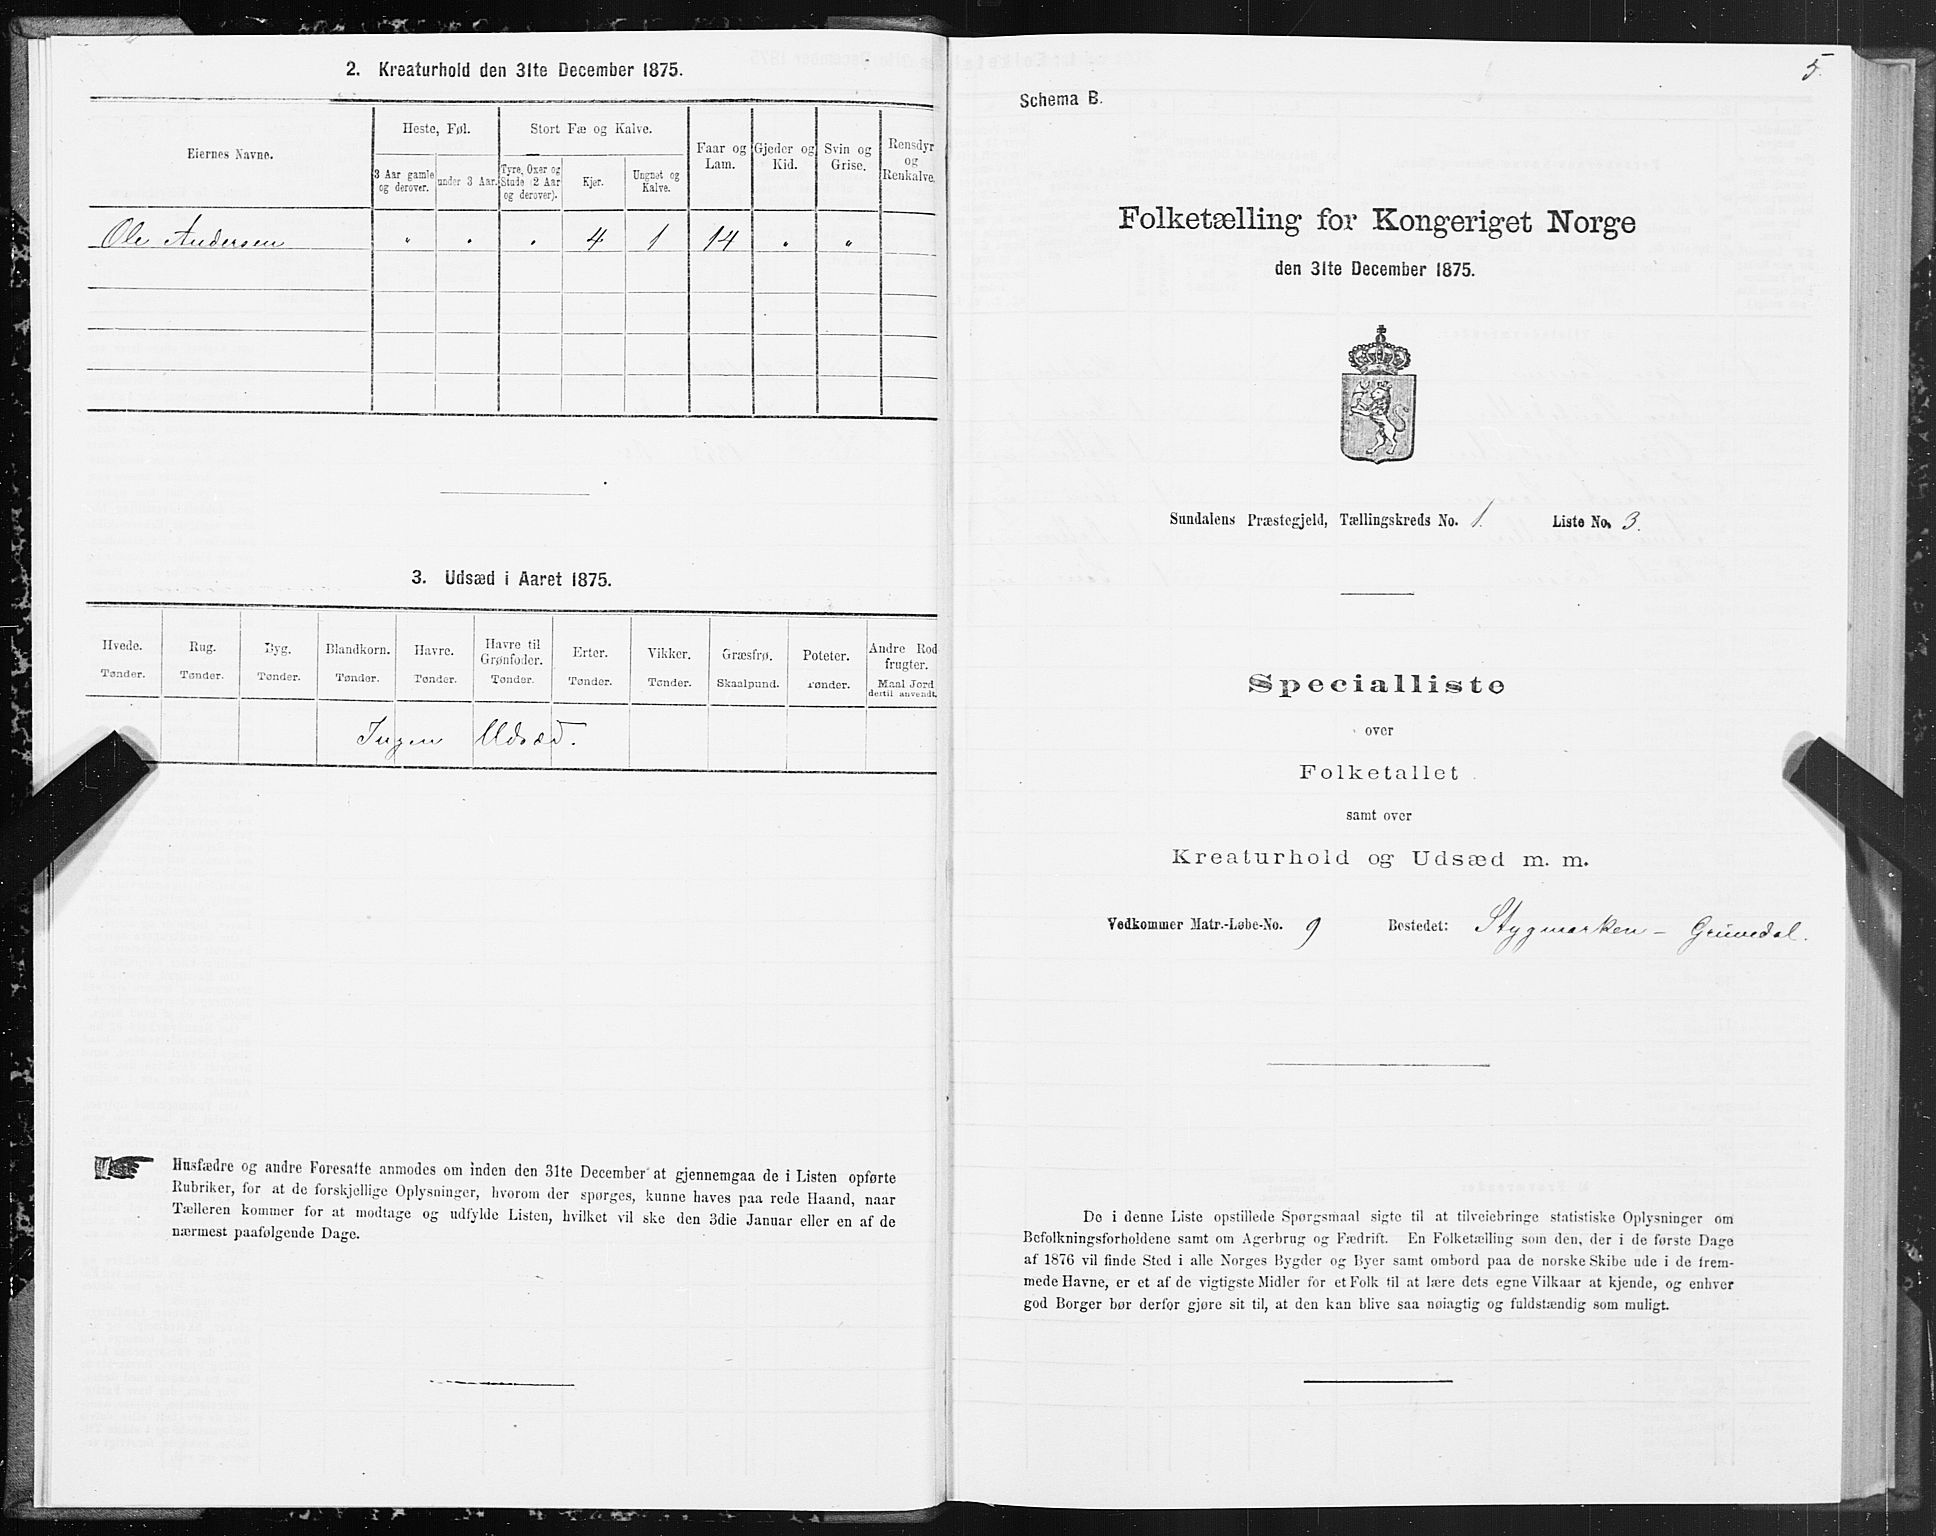 2. Kreaturhold den 31te December 1875.
Eiernes Navne.
Heste, Føl.
3 Aar gamle og derover.
under 3 Aar.
Stort Fæ og Kalve.
Tyre, Oxer og Stude (2 Aar og derover).
Kjør.
Ungnøt og Kalve.
Faar og Lam.
Gjeder og Kid.
Svin og Grise.
Rensdyr og Renkalve.
Ole Andersen " " " 4 1 14 " "
3. Udsæd i Aaret 1875.
Hvede. Rug. Byg. Blandkorn. Havre. Havre til Grønfoder. Erter. Vikker. Græsfrø. Poteter. Andre Rodfrugter.
Tønder. Tønder. Tønder. Tønder. Tønder. Tønder. Tønder. Tønder. Skaalpund. Tønder. Maal Jord dertil anvendt.
Ingen Udsæd.
Husfædre og andre Foresatte anmodes om inden den 31te December at gjennemgaa de i Listen opførte
Rubriker, for at de forskjellige Oplysninger, hvorom der spørges, kunne haves paa rede Haand, naar
Tælleren kommer for at modtage og udfylde Listen, hvilket vil ske den 3die Januar eller en af de
nærmest paafølgende Dage.
5.
Schema B.
Folketælling for Kongeriget Norge
den 31te December 1875.
Sundalens Præstegjeld, Tællingskreds No. 1. Liste No. 3.
Specialliste
over
Folketallet
samt over
Kreaturhold og Udsæd m. m.
Vedkommer Matr.-Løbe-No. 9 Bostedet: Stygmarken - Grüvedal.
De i denne Liste opstillede Spørgsmaal sigte til at tilveiebringe statistiske Oplysninger om
Befolkningsforholdene samt om Agerbrug og Fædrift. En Folketælling som den, der i de første Dage
af 1876 vil finde Sted i alle Norges Bygder og Byer samt ombord paa de norske Skibe ude i de frem-
mede Havne, er et af de vigtigste Midler for et Folk til at lære dets egne Vilkaar at kjende, og enhver
god Borger bør derfor gjøre sit til, at den kan blive saa nøiagtig og fuldstændig som muligt.